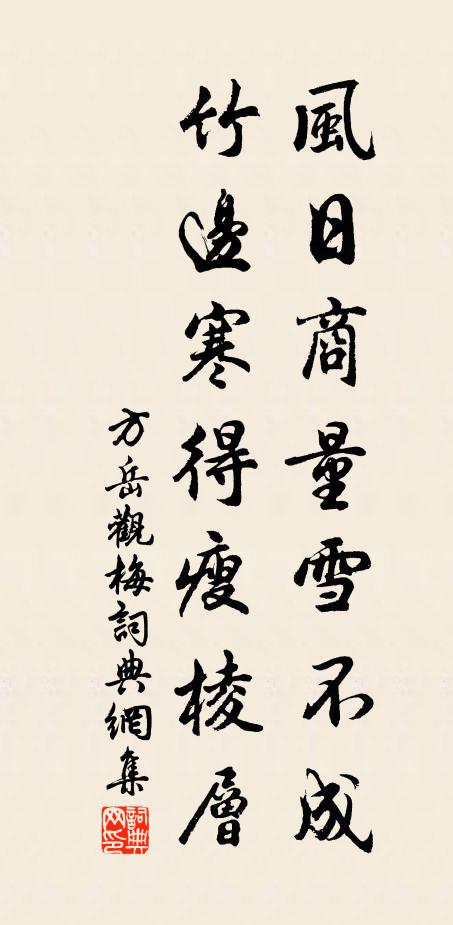 風日商量雪不成
竹邊寒得瘦棱層
方岳觀梅詞典網集
詞典网印